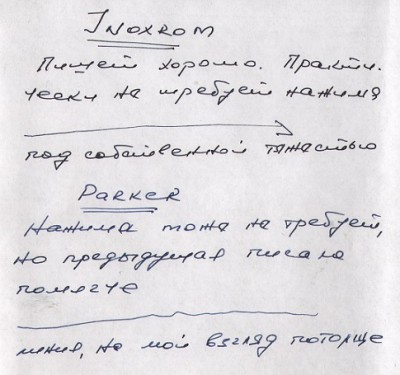 Inoxrom
Пишет хорошо. Практи.
чески не требует нажима
под собственной тяжестью
Parker
Нажима тоже не требует,
но предыдущая писала
помягче
линия, на мой взгляд потолще